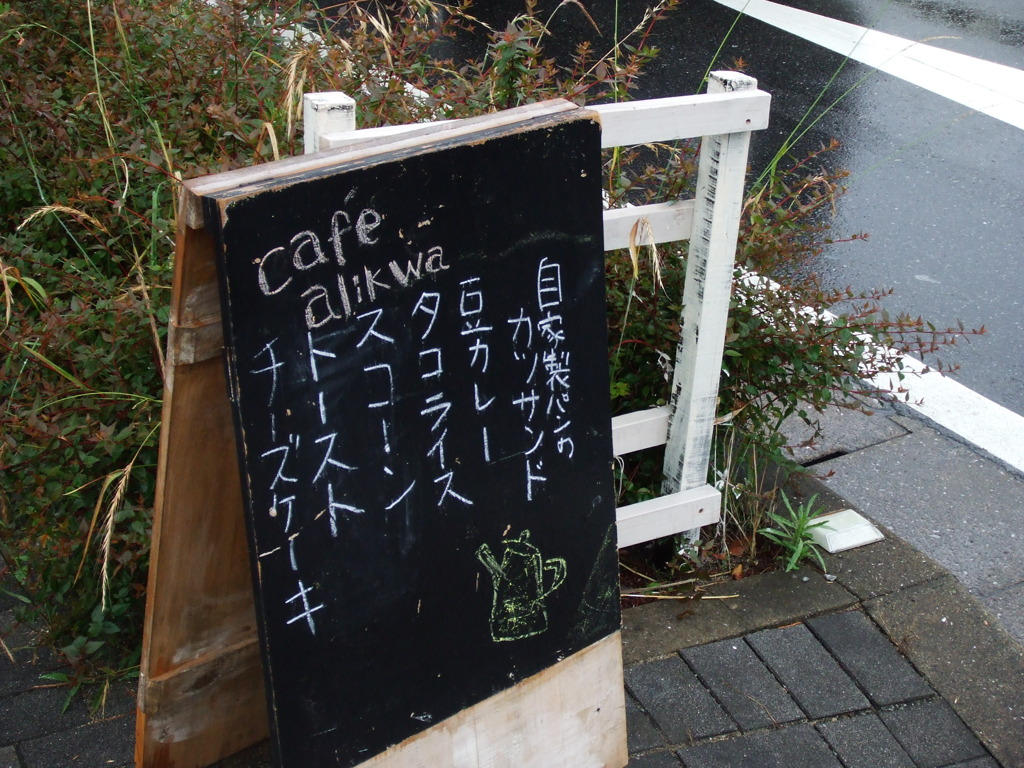 café
alikwa
自家製パンの
カツサンド
豆カレー
タコライス
スコーン
トースト
チーズケーキ